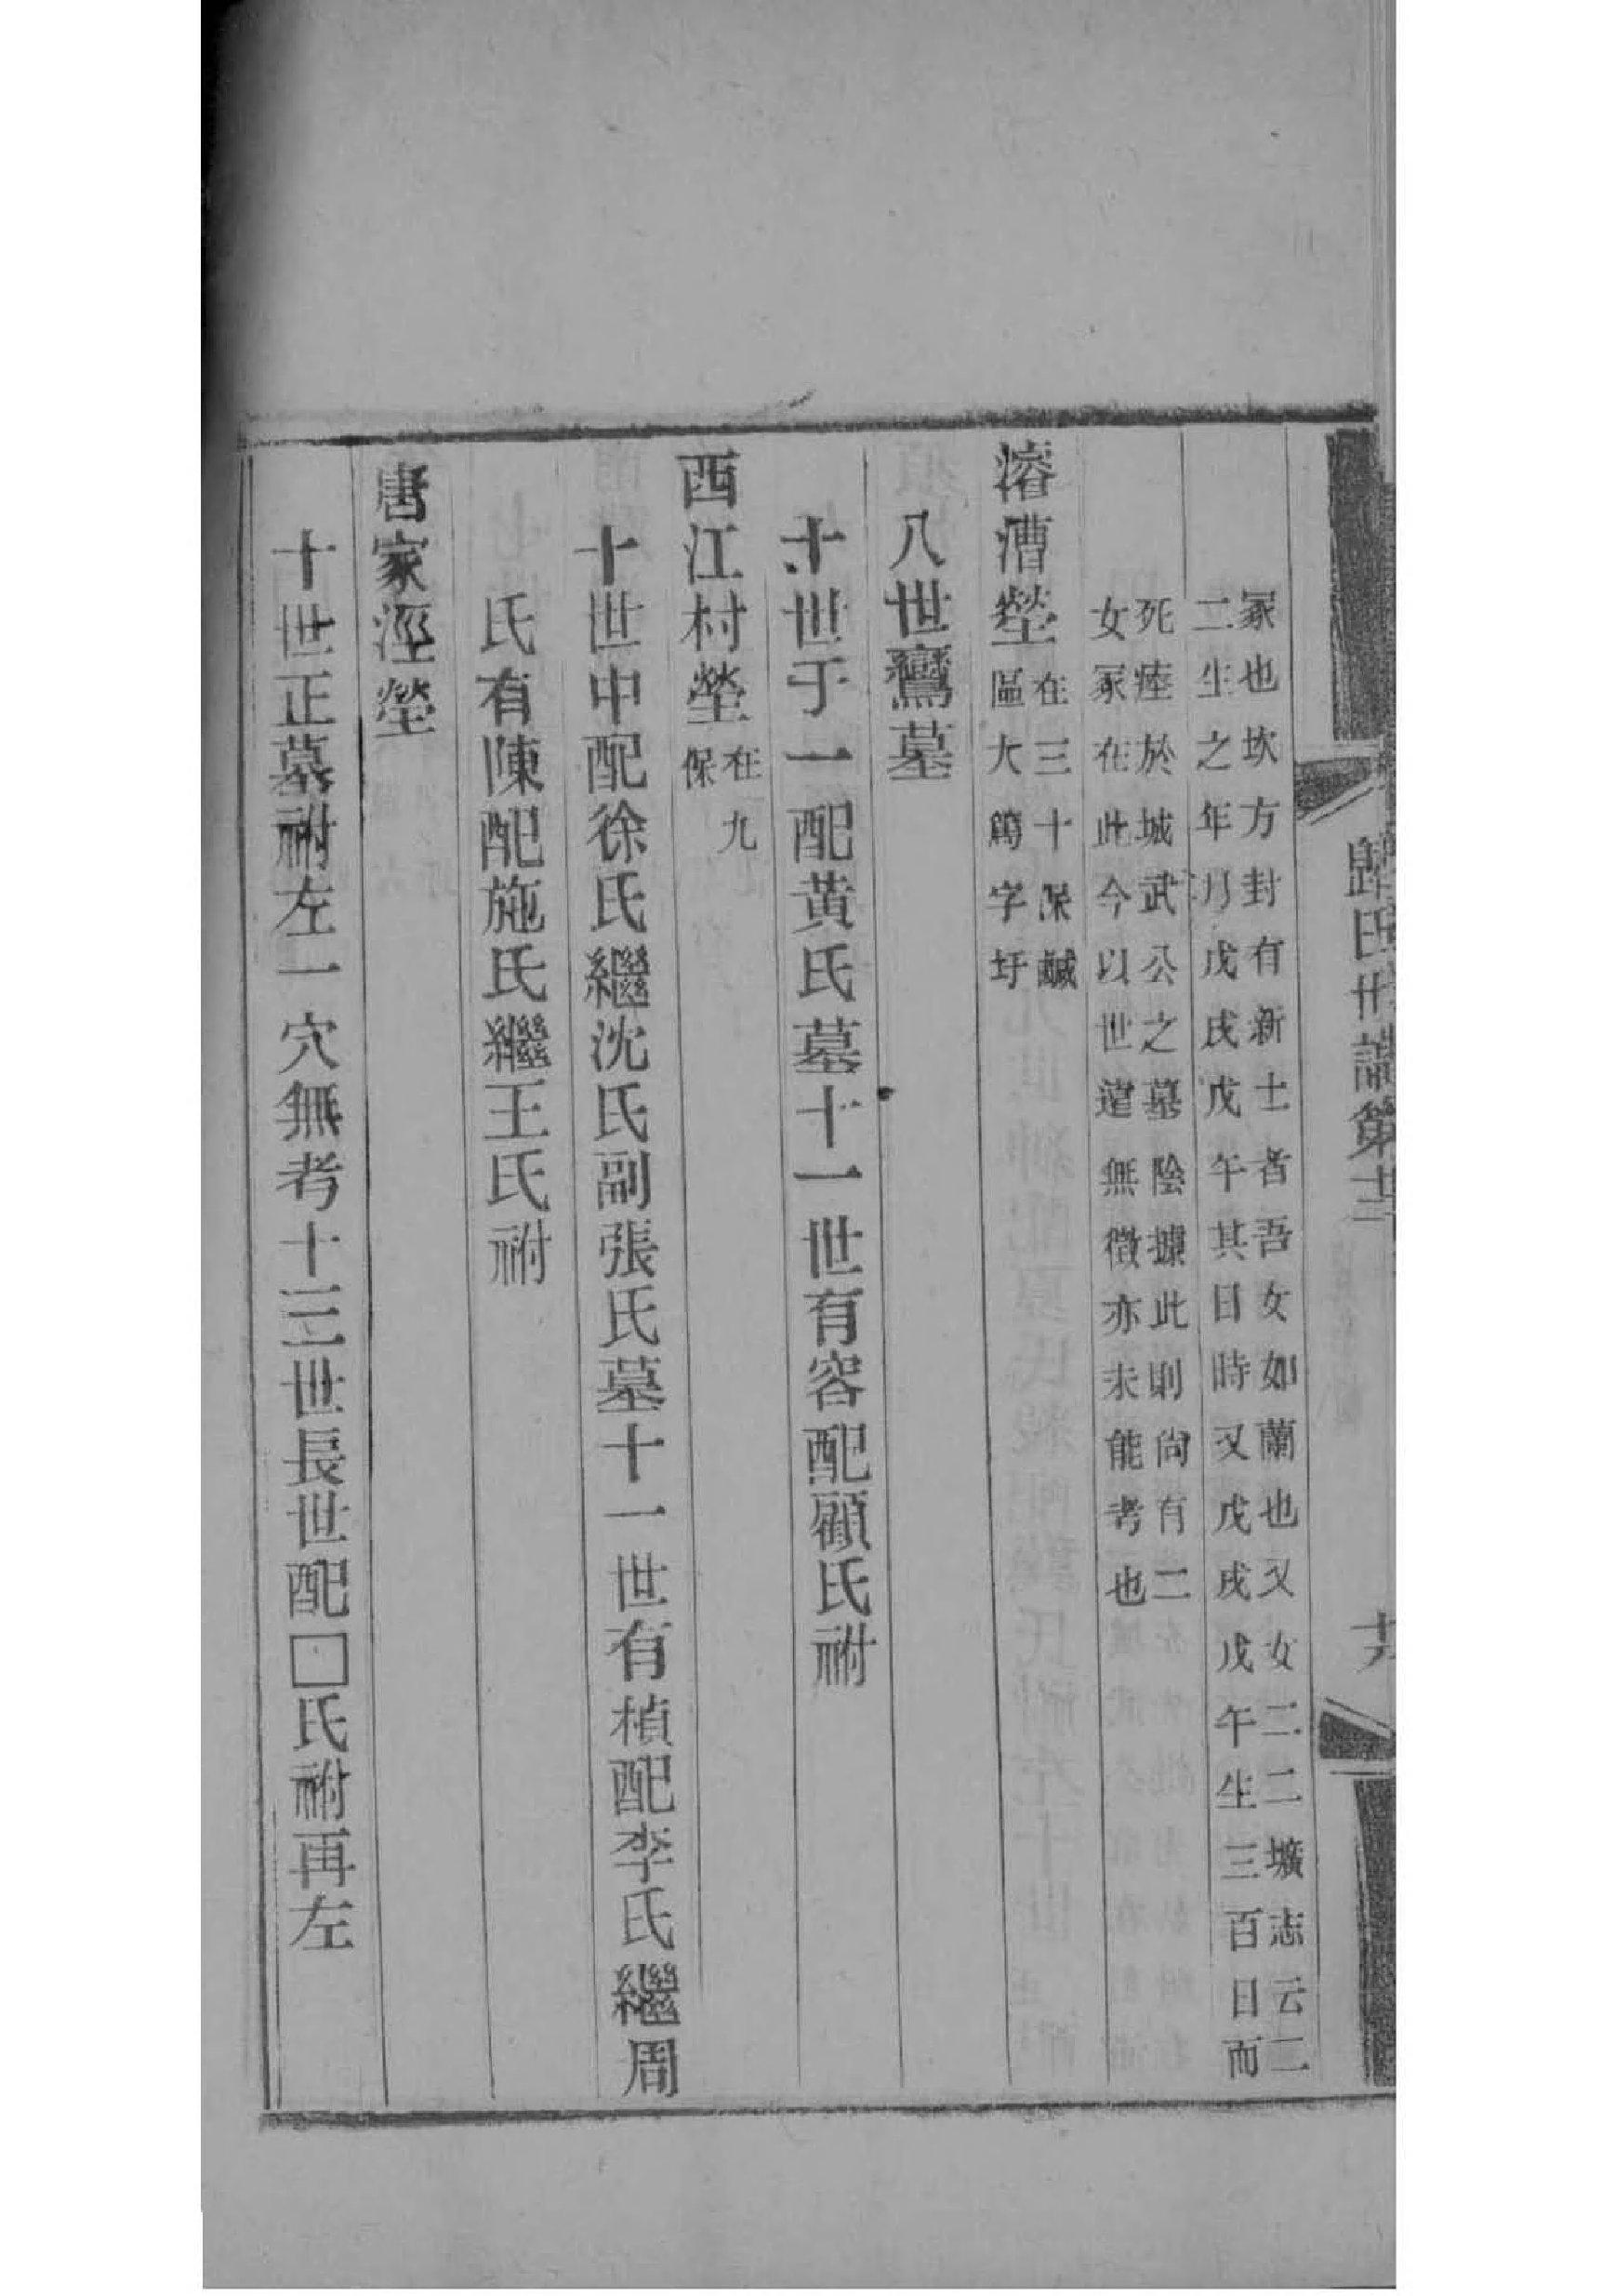 歸氏世譜第十二
冢也坎方封有新土者吾女如蘭也又女二二壙志云二
二生之年月戊戌戊午其日時又戊戌戊午生三百日而
死瘞於城武公之墓陰據此則尚有二
女冢在此今以世遠無徵亦未能考也
濬漕塋在三十保鹹
區大篤字圩
八世鸞墓
十世于一配黄氏墓十一世有容配顧氏祔
西江村塋在九
保
十世中配徐氏繼沈氏副張氏墓十一世有楨配李氏繼周
氏有陳配施氏繼王氏祔
唐家涇塋
十世正墓祔左一穴無考十三世長世配□氏祔再左